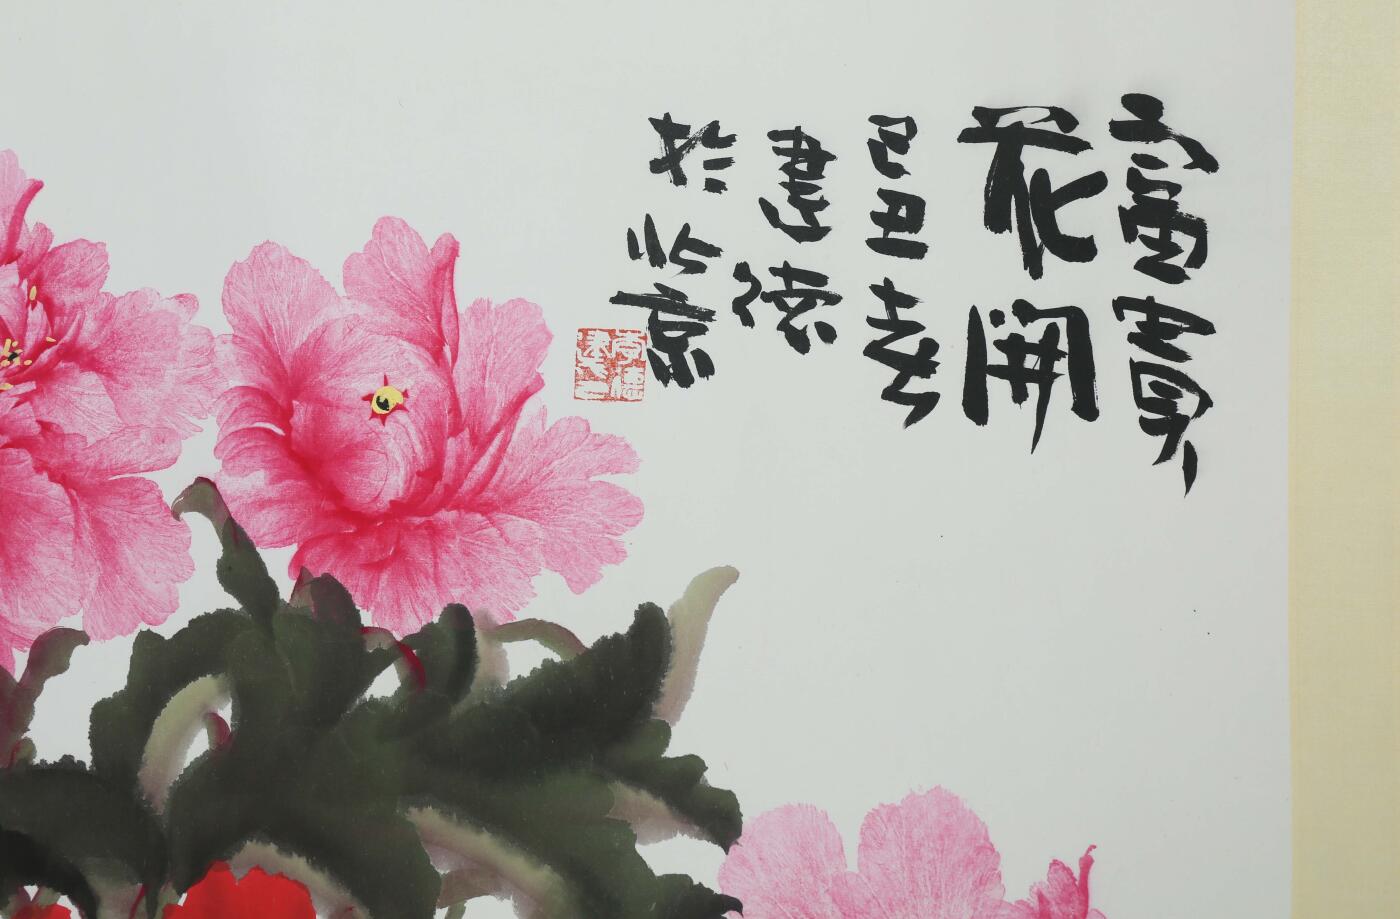 富貴
花開
己丑春
建德
於北京